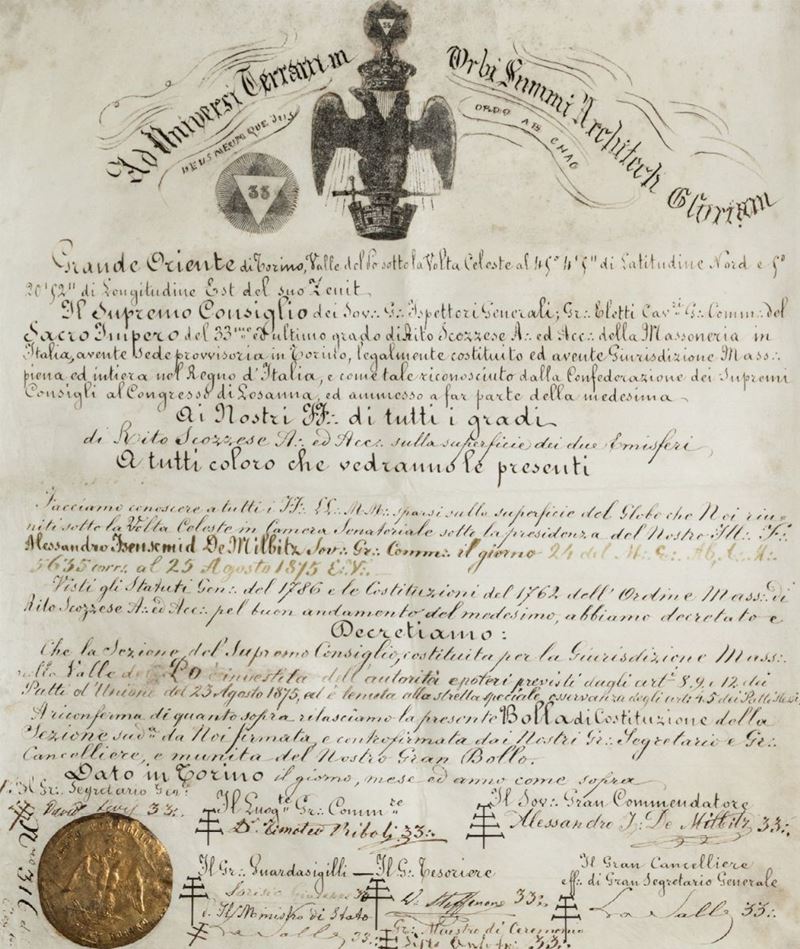 Ad Universi Terrarum Orbi Summi Architecti Gloriam
DEUS MEUMQUE JUS
ORDO AB CHAO
33
33
Grande Oriente di Torino, Valle del Po sotto la Volta Celeste al 45° 4' 5" di Latitudine Nord e 5°
20' 52" di Longitudine Est del suo Zenit
Il Supremo Consiglio dei Sov∴ G∴ Ispettori Generali; Gr∴ Eletti Cav.ri G∴ Comm∴ del
Sacro Impero del 33mo ed ultimo grado di Rito Scozzese A∴ ed Acc∴ della Massoneria in
Italia, avente sede provvisoria in Torino, legalmente costituito ed avente Giurisdizione Mass∴
piena ed intiera nel Regno d'Italia, e come tale riconosciuto dalla Confederazione dei Supremi
Consigli al Congresso di Losanna, ed ammesso a far parte della medesima
Ai Nostri FF∴ di tutti i gradi
di Rito Scozzese A∴ ed Acc∴ sulla superficie dei due Emisferi
A tutti coloro che vedranno le presenti
Facciamo conoscere a tutti i FF∴ LL∴ MM∴ sparsi sulla superficie del Globo che Noi riu-
niti sotto la Volta Celeste in Camera Senatoriale sotto la presidenza del Nostro Ill∴ F∴
Alessandro Isenschmid De Milbitz Sov∴ Gr∴ Comm∴ il giorno 24 del M∴
5635 corr∴ al 25 Agosto 1875 E∴ V∴
Visti gli Statuti Gen∴ del 1786 e le Costituzioni del 1762 dell'Ordine Mass∴ di
Rito Scozzese A∴ ed Acc∴ pel buon andamento del medesimo, abbiamo decretato e
Decretiamo:
Che la Sezione del Supremo Consiglio, costituita per la Giurisdizione Mass∴
nella Valle del Po è investita dell'autorità e poteri previsti dagli art.li 8, 9, e 12 dei
Patti d'Unione del 23 Agosto 1875, ed è tenuta alla stretta speciale, osservanza degli arti 4.5 dei Patti
A riconferma di quanto sopra rilasciamo la presente Bolla di Costituzione della
Sezione sud.a da Noi firmata, e controfirmata dai Nostri Gr∴ Segretario e Gr∴
Cancelliere, e munita del Nostro Gran Bollo.
Dato in Torino il giorno, mese ed anno come sopra
Il Gr∴ Segretario Gen∴
David Levi 33∴
Il Luogte Gr∴ Commre
Dr. Timoteo Riboli 33∴
Il Sov∴ Gran Commendatore
Alessandro I∴ De Milbitz 33∴
Il Gr∴ Guardasigilli
Il G∴ Tesoriere
33∴
Il Gran Cancelliere
eff∴ di Gran Segretario Generale
La Salle 33∴
Il Ministro di Stato
La Salle 33∴
Gr∴ Maestro di Ceremonie
33∴